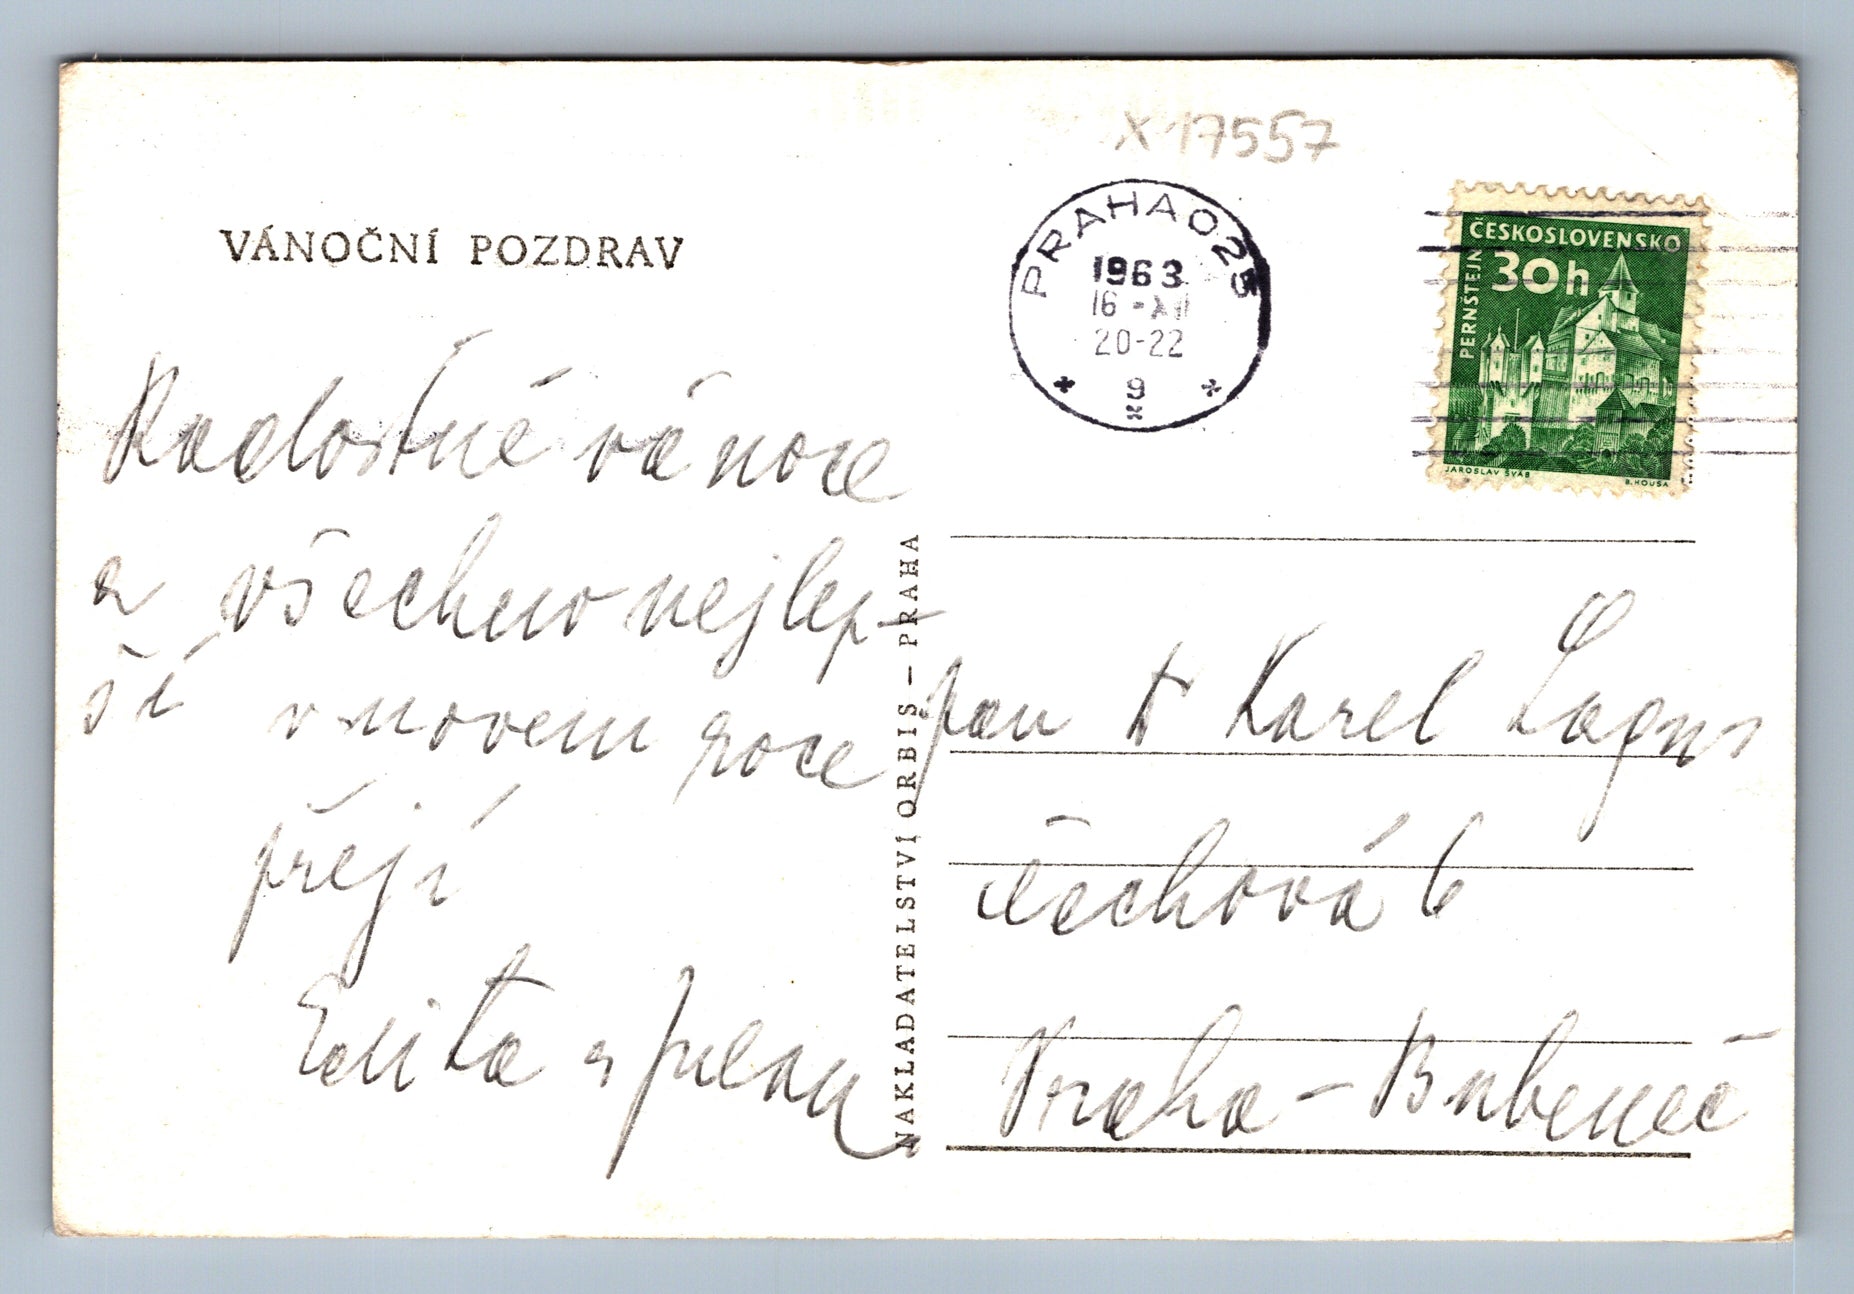 X 17557
VÁNOČNÍ POZDRAV
PRAHA 025
1963
16 - XII
20-22
9
ČESKOSLOVENSKO
30h
PERNŠTEJN
JAROSLAV ŠVÁB
B. HOUSA
Radostné vánoce
a všechno nejlep-
ší v novem roce
přejí
Edita s
NAKLADATELSTVÍ ORBIS – PRAHA
pan Karel Lagus
čechová 6
Praha - Bubeneč